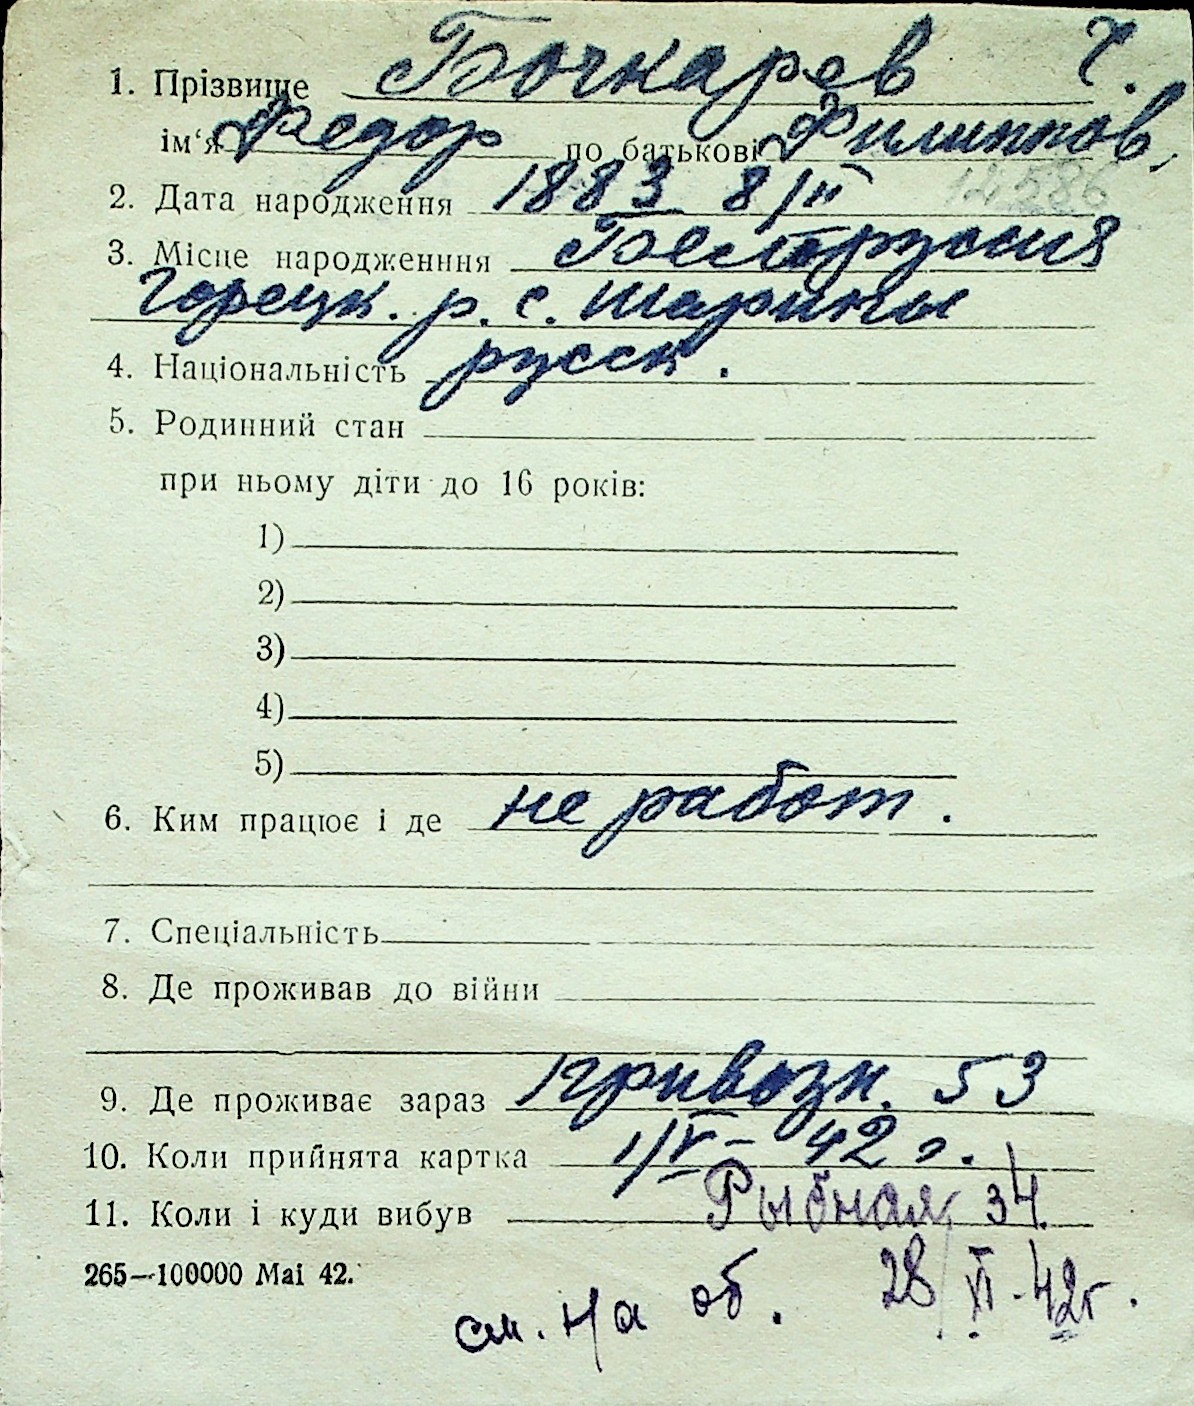 1. Прізвище Бочкарев Ч.
ім‘я Федор по батькові Филиппов.
12586
2. Дата народження 1883 8/II
3. Місце народженння Белоруссия
Горецк. р. с. Шарины
4. Національність русск.
5. Родинний стан
при ньому діти до 16 років:
1)
2)
3)
4)
5)
6. Ким працює і де не работ.
7. Спеціальність
8. Де проживав до війни
9. Де проживає зараз Привозн. 53
10. Коли прийнята картка 1/V – 42 г.
11. Коли і куди вибув Рыбная 34
265—100000 Mai 42.
см. на об. 28/VI-42г.